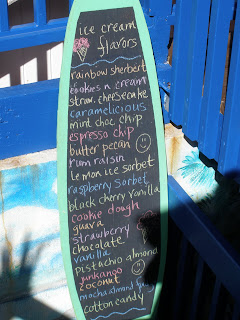 ice cream
flavors
rainbow sherbert
cookies n cream
straw. cheesecake
caramelicious
mint choc chip
espresso chip
butter pecan
rum raisin
lemon ice sorbet
raspberry sorbet
black cherry vanilla
cookie dough
guava
strawberry
chocolate
vanilla
pistachio almond
coconut
mocha almond
cotton candy